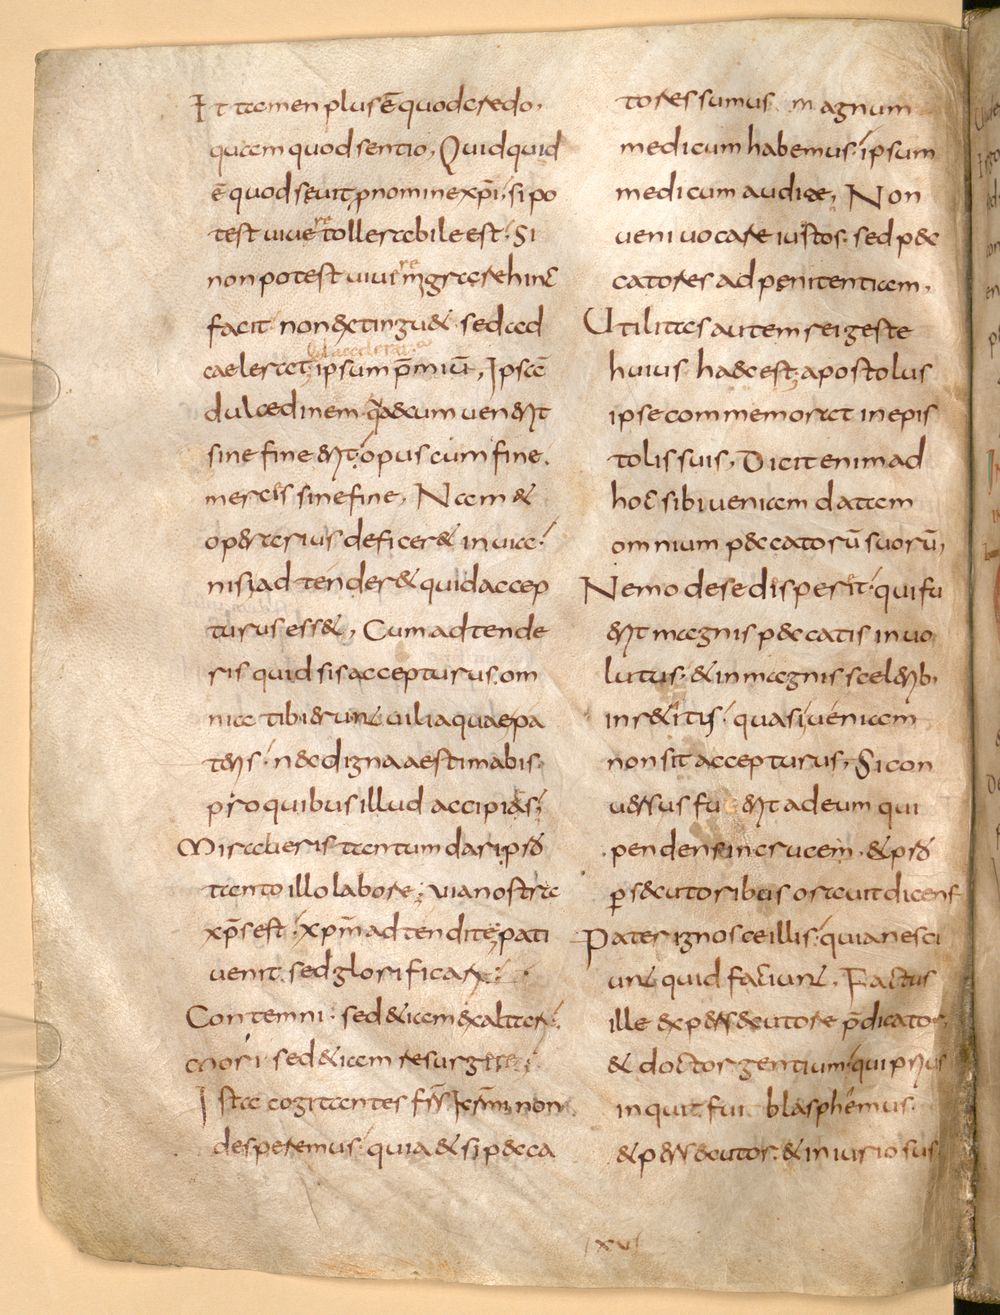 Et tamen plus ē quod credo,
quam quod sentio, Quidquid
ē quod sęuit, p nomine xp̄i, si po
test uiuere tollerabile est; Si
non potest uiuere migrare hinc
facit. non extinguet. sed ad
uel accelerat
caelerat; ipsum p̄miū, Ipsa
dulcedinem. quae cum uenerit
sine fine erit; opus cum fine.
mercis sine fine, Nam &
operarius deficeret in uia.
nisi adtenderet quid accep
turus esset, Cum adtende
ris quid sis accepturus. om
nia tibi erunt uilia quae pa
teris. nec digna aestimabis.
pro quibus illud accipias;
Miraueris tantum dari pro
tanto illo labore; uia nostra
xp̄s est. xp̄m adtendite; pati
uenit. sed glorificari.
Contemni. sed etiam exaltari.
mori. sed etiam resurgere.
Ista cogitantes frs̄ kr̄mi, non
desperemus. quia & si pecca
tores sumus. magnum
medicum habemus. ipsum
medicum audite, Non
ueni uocare iustos. sed pec
catores ad penitentiam,
Utilitas autem rei geste
huius. haec est; apostolus
ipse commemorat in epis
tolis suis, Dicit enim ad
hoc sibi ueniam datam
omnium peccatorū suorū,
Nemo de se disperet. qui fu
erit magnis peccatis inuo
lutus. & in magnis scelerib;
inretitis. quasi ueniam
non sit accepturus, Si con
uersus fuerit ad eum qui
pendens in crucem. & pro
persecutoribus orauit dicens
Pater ignosce illis. quia nesci
unt quid faciunt, Factus
ille ex persecutore p̄dicator.
& doctor gentium. qui prius
inquit fui blasphemus.
& persecutor. & iniuriosus.
xvi